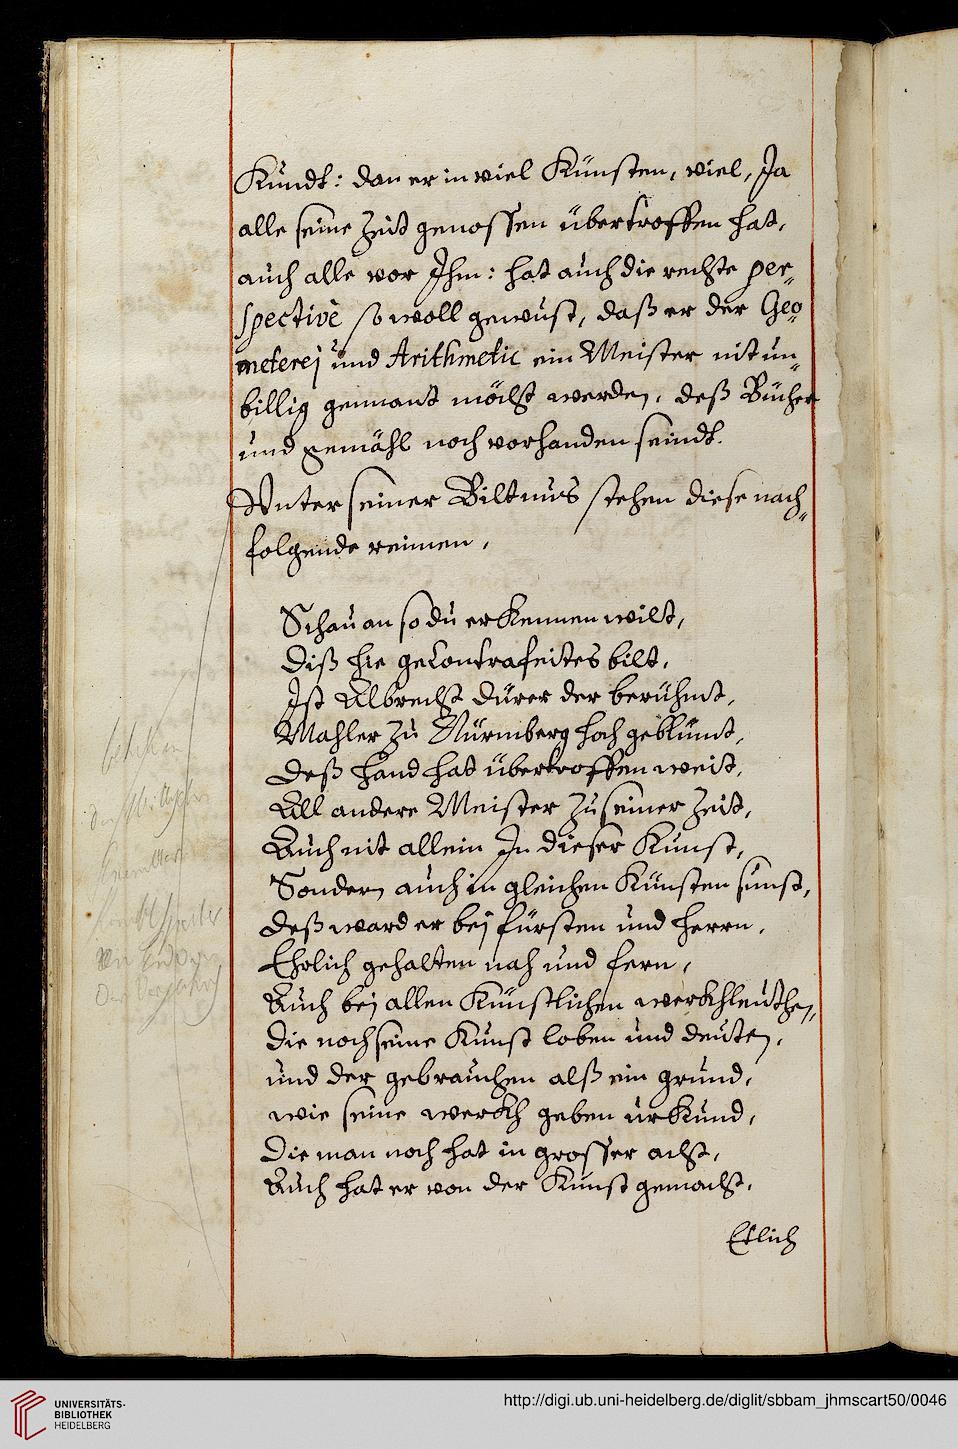 Kundt: dan er in viel Künsten, viel, Ja
alle seine Zeit genossen übertroffen hat,
auch alle vor Ihm: hat auch die rechte per„
spective so woll gewust, daß er der Geo„
meterej und Arithmetic ein Meister nit un„
billig gennant möcht werden, deß Bücher
und gemähl noch vorhanden seindt.
Vnter seiner Biltnus stehen diese nach„
folgende reimen,
Schau an so du erkennen wilt,
diß hie geContrafeites bilt,
Ist Albrecht dürer der berühmt,
Mahler zu Nürmberg hoch geblümt,
deß hand hat übertroffen weit,
All andere Meister zu seiner Zeit,
Auch nit allein In dieser Kunst,
Sondern auch in gleichen Künsten sunst,
deß ward er bej fürsten und herrn,
Ehrlich gehalten nah und fern,
Auch bej allen Künstlichen werckhleuthen,
die noch seine Kunst loben und deuten,
und der gebrauchen alß ein grund,
wie seine werckh geben urkund,
die man noch hat in grosser acht,
Auch hat er von der Kunst gemacht,
Etlich
UNIVERSITÄTS-
BIBLIOTHEK
HEIDELBERG
http://digi.ub.uni-heidelberg.de/diglit/sbbam_jhmscart50/0046